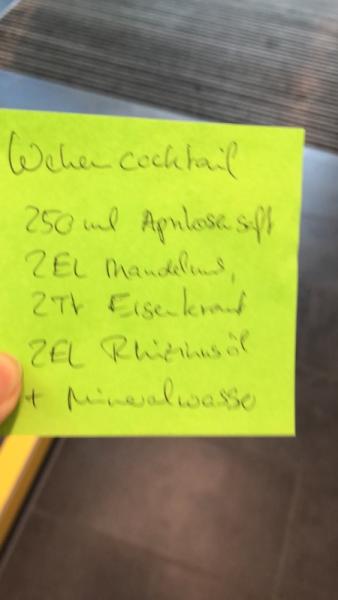 Wehencocktail
250 ml Aprikosensaft
2EL Mandelmus,
2TL Eisenkraut
2EL Rhizinusöl
+ Mineralwasser